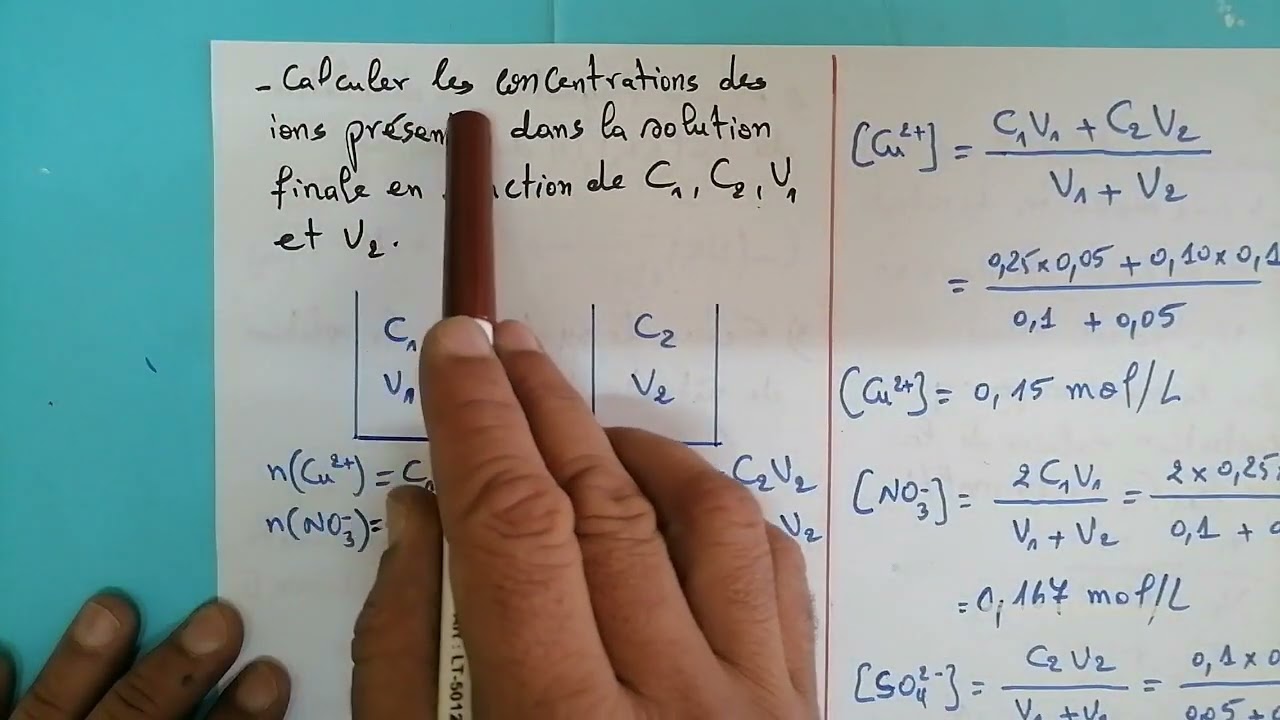 - Calculer les concentrations des
ions dans la solution
finale en de C₁, C₂, V₁
et V₂.
C₁
V₁
C₂
V₂
n(Cu²⁺) = C
C₂V₂
n(NO₃⁻) =
V₂
[Cu²⁺] = (C₁V₁ + C₂V₂) / (V₁ + V₂)
= (0,25×0,05 + 0,10×0,1) / (0,1 + 0,05)
[Cu²⁺] = 0,15 mol/L
[NO₃⁻] = 2C₁V₁ / (V₁ + V₂) = 2×0,25 / 0,1 +
= 0,167 mol/L
[SO₄²⁻] = C₂V₂ / (V₁ + V₂) = 0,1×0 / 0,05 +
LT-5012